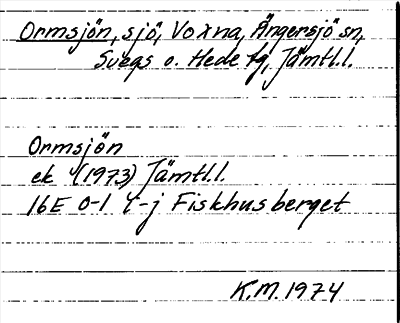 Ormsjön, sjö, Voxna, Ängersjö sn,
Svegs o. Hede tg, Jämtl.l.
Ormsjön
ek (1973) Jämtl.l.
16E 0-1 i-j Fiskhusberget
K.M. 1974